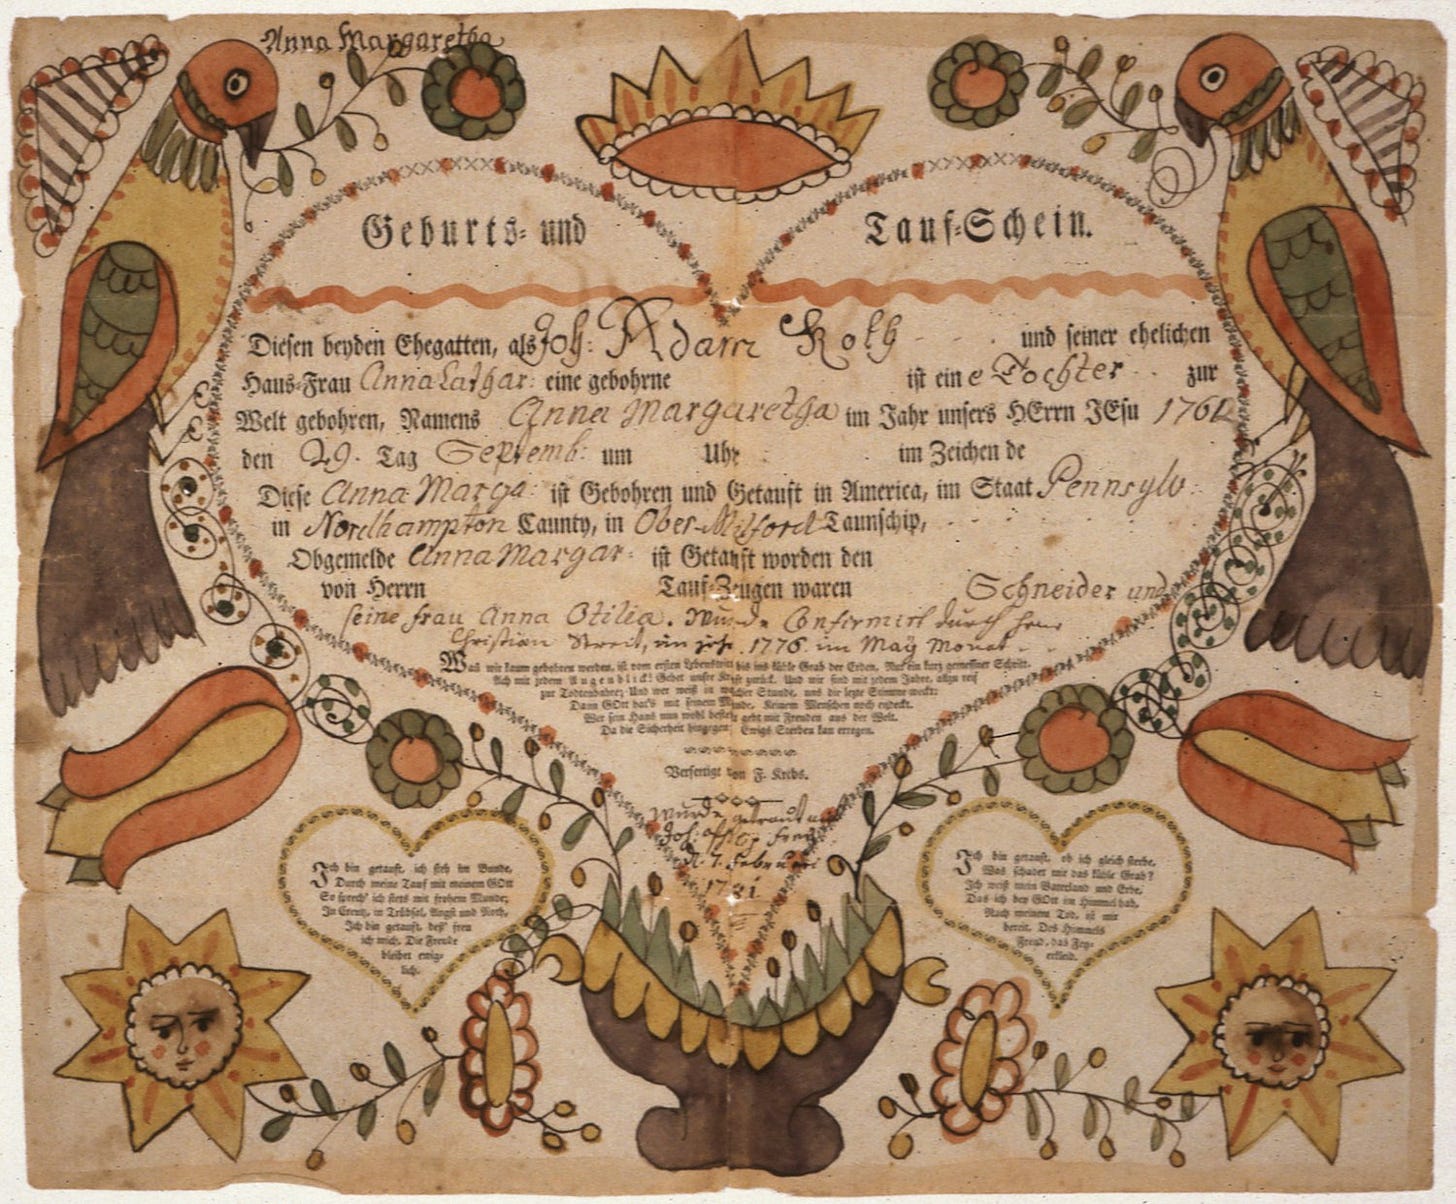 Anna Margaretha
Geburts- und Tauf-Schein.
Diesen beyden Ehegatten, als Joh: Adam Roth und seiner ehelichen
Haus-Frau Anna Cathar: eine gebohrne ist eine Tochter zur
Welt gebohren, Namens Anna Margaretha im Jahr unsers HErrn JEsu 1761
den 29. Tag Septemb: um Uhr im Zeichen de
Diese Anna Marga: ist Gebohren und Getauft in America, im Staat Pennsylv:
in Nordhampton Caunty, in Ober-Milford Taunschip,
Obgemelde Anna Margar: ist Getauft worden den
von Herrn Tauf-Zeugen waren Schneider und
seine frau Anna Otilia. Wurde Confirmirt durch Herr
Christian Streit, im jahr 1776. im May Monat.
Was wir kaum gebohren werden, ist vom ersten Lebenstritt bis ins kühle Grab der Erden, Nur ein kurz gemessner Schritt.
Ach mit jedem Augenblick! Gehet unser Kraft zurück. Und wir sind mit jedem Jahre, allzu reif
zur Todtenbahre; Und wer weiß in welcher Stunde, uns die lezte Stimme weckt:
Dann GOtt hat's mit seinem Munde, Keinem Menschen noch entdeckt.
Wer sein Haus nun wohl bestellt, geht mit Freuden aus der Welt.
Da die Sicherheit hingegen, Ewigs Sterben kan erregen.
Verfertigt von F. Krebs.
Wurde getraut
Joh:
7. Februari
1781
Ich bin getauft, ich steh im Bunde,
Durch meine Tauf mit meinem GOtt
So sprech' ich stets mit frohem Munde;
In Creutz, in Trübsal, Angst und Noth,
Ich bin getauft, deß' freu
ich mich, Die Freude
bleibet ewig-
lich.
Ich bin getauft, ob ich gleich sterbe,
Was schadet mir das kühle Grab?
Ich weiß mein Vaterland und Erbe,
Das ich bey GOtt im Himmel hab,
Nach meinem Tod, ist mir
bereit, Des Himmels
Freud, das Fey-
erkleid.